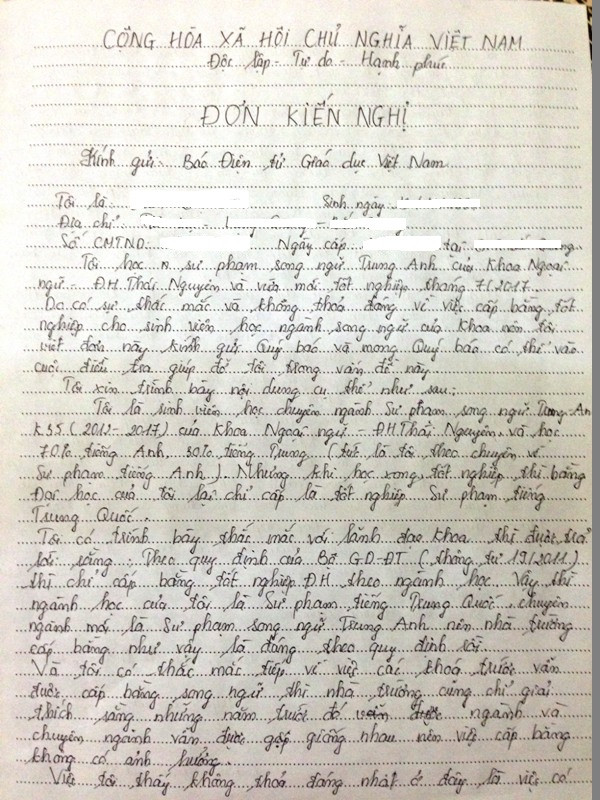 CỘNG HÒA XÃ HỘI CHỦ NGHĨA VIỆT NAM
Độc lập - Tự do - Hạnh phúc
ĐƠN KIẾN NGHỊ
Kính gửi: Báo Điện tử Giáo dục Việt Nam
Tôi là Sinh ngày
Địa chỉ
Số CMTND: Ngày cấp tại
Tôi học n. sư phạm song ngữ Trung Anh của Khoa Ngoại
ngữ - ĐH Thái Nguyên và vừa mới tốt nghiệp tháng 7/2017.
Do có sự thắc mắc và không thoả đáng về việc cấp bằng tốt
nghiệp cho sinh viên học ngành song ngữ của Khoa nên tôi
viết đơn này kính gửi Quý báo và mong Quý báo có thể vào
cuộc điều tra giúp đỡ tôi trong vấn đề này.
Tôi xin trình bày nội dung cụ thể như sau:
Tôi là sinh viên học chuyên ngành Sư phạm song ngữ Trung-Anh
K35 (2012-2017) của Khoa Ngoại ngữ - ĐH Thái Nguyên và học
70% tiếng Anh, 30% tiếng Trung (tức là tôi theo chuyên về
Sư phạm tiếng Anh). Nhưng khi học xong, tốt nghiệp thì bằng
Đại học của tôi lại chỉ cấp là tốt nghiệp Sư phạm tiếng
Trung Quốc.
Tôi có trình bày thắc mắc với lãnh đạo Khoa thì được trả
lời rằng: Theo quy định của Bộ GD-ĐT (tháng tư 19/2011)
thì chỉ cấp bằng tốt nghiệp ĐH theo ngành học. Vậy thì
ngành học của tôi là Sư phạm tiếng Trung Quốc, chuyên
ngành mới là Sư phạm song ngữ Trung Anh nên nhà trường
cấp bằng như vậy là đúng theo quy định rồi.
Và tôi có thắc mắc tiếp về việc các khoá trước vẫn
được cấp bằng song ngữ thì nhà trường cũng chỉ giải
thích rằng những năm trước đó ngành và
chuyên ngành vẫn được gộp giống nhau nên việc cấp bằng
không có ảnh hưởng.
Việc tôi thấy không thoả đáng nhất ở đây là việc có